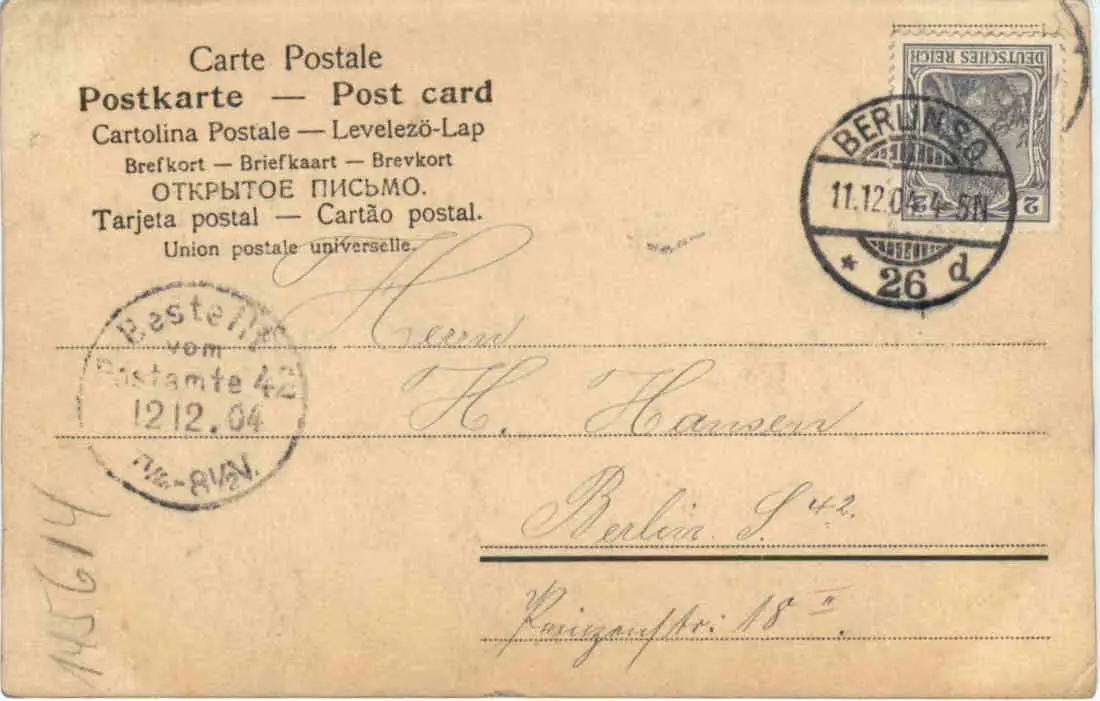 Carte Postale
Postkarte — Post card
Cartolina Postale — Levelező-Lap
Brefkort — Briefkaart — Brevkort
ОТКРЫТОЕ ПИСЬМО.
Tarjeta postal — Cartão postal.
Union postale universelle.
DEUTSCHES REICH
2 2
BERLIN S.O.
11.12.04. 4-5N
* 26 d
Bestellt
vom
Postamte 42
12 12.04
7½-8½V.
Herrn
H. Hansen
Berlin. S 42.
Prinzenstr: 18 II.
145614